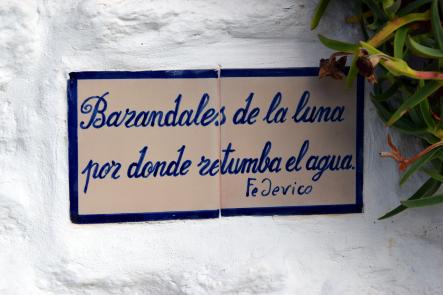 Barandales de la luna
por donde retumba el agua.
Federico